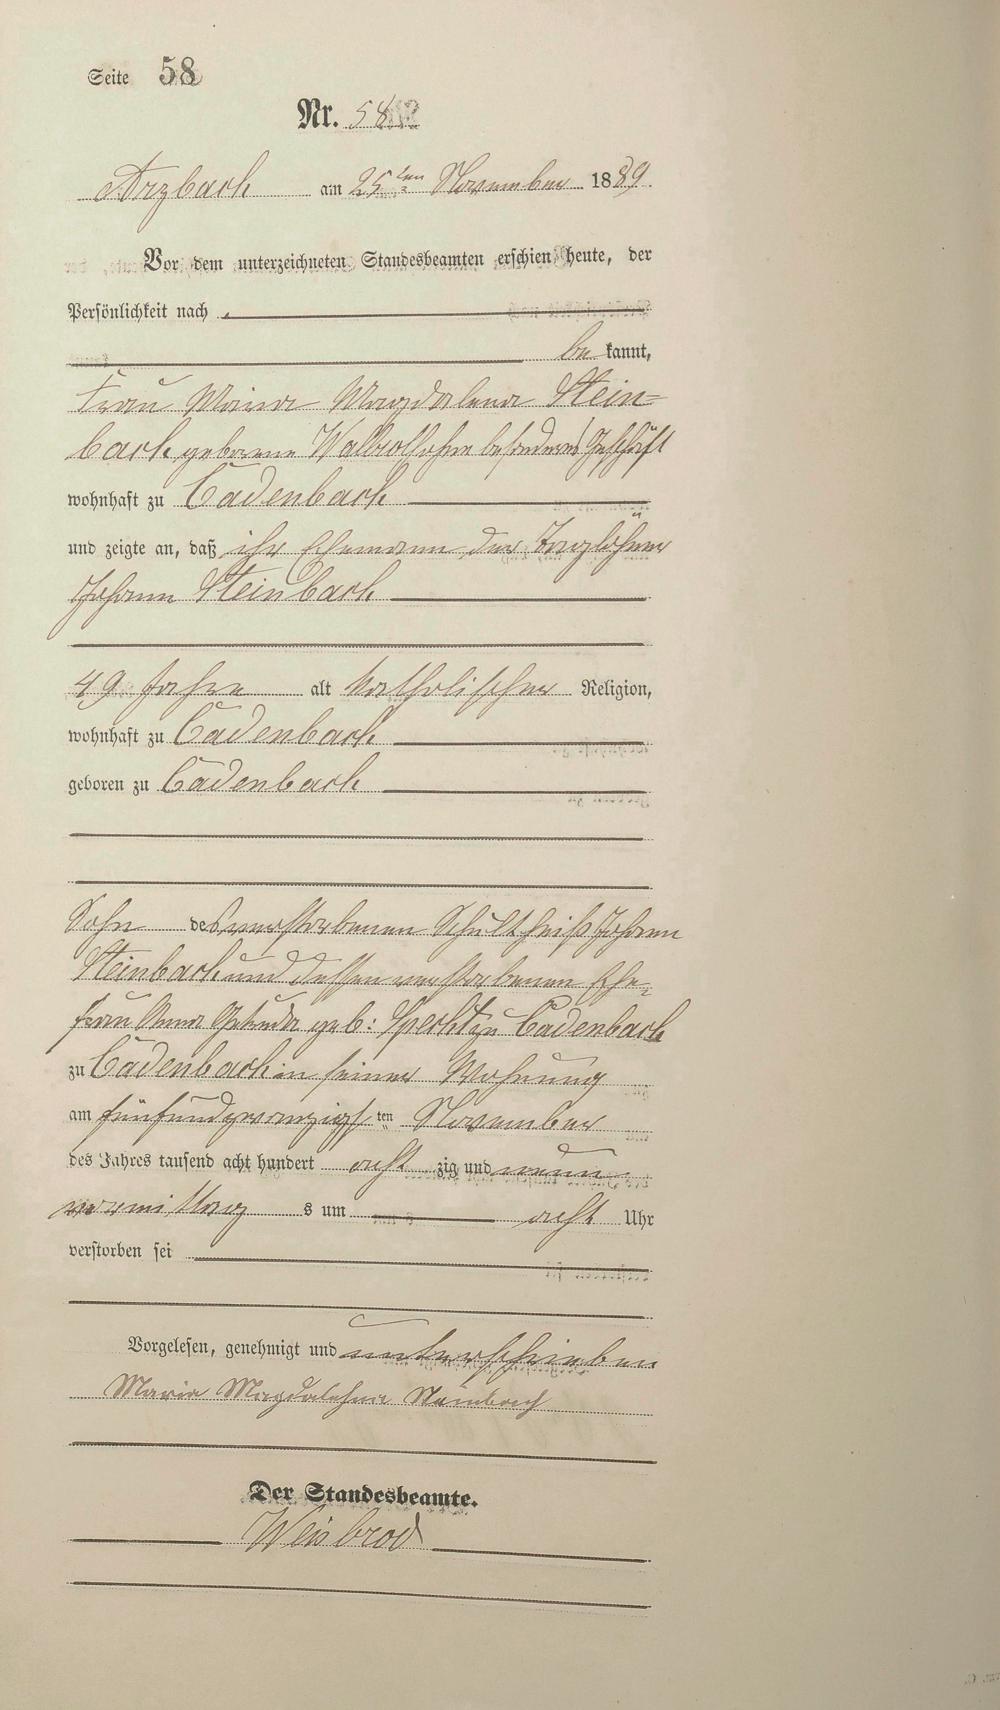 Seite 58
Nr. 58
Arzbach am 25ten November 1889
Vor dem unterzeichneten Standesbeamten erschien heute, der
Persönlichkeit nach
be kannt,
Frau Maria Magdalena Stein=
bach geborene ohne besonderes Geschäft
wohnhaft zu Cadenbach
und zeigte an, daß ihr Ehemann der Taglöhner
Johann Steinbach
49 Jahre alt katholischer Religion,
wohnhaft zu Cadenbach
geboren zu Cadenbach
Sohn des verstorbenen Schultheiß Johann
Steinbach und dessen verstorbenen Ehe=
frau Anna geb: Specht zu Cadenbach
zu Cadenbach in seiner Wohnung
am fünfundzwanzigsten November
des Jahres tausend acht hundert acht zig und neun
vormittag s um acht Uhr
verstorben sei
Vorgelesen, genehmigt und unterschrieben
Maria Magdalehna Steinbach
Der Standesbeamte.
Weisbrod